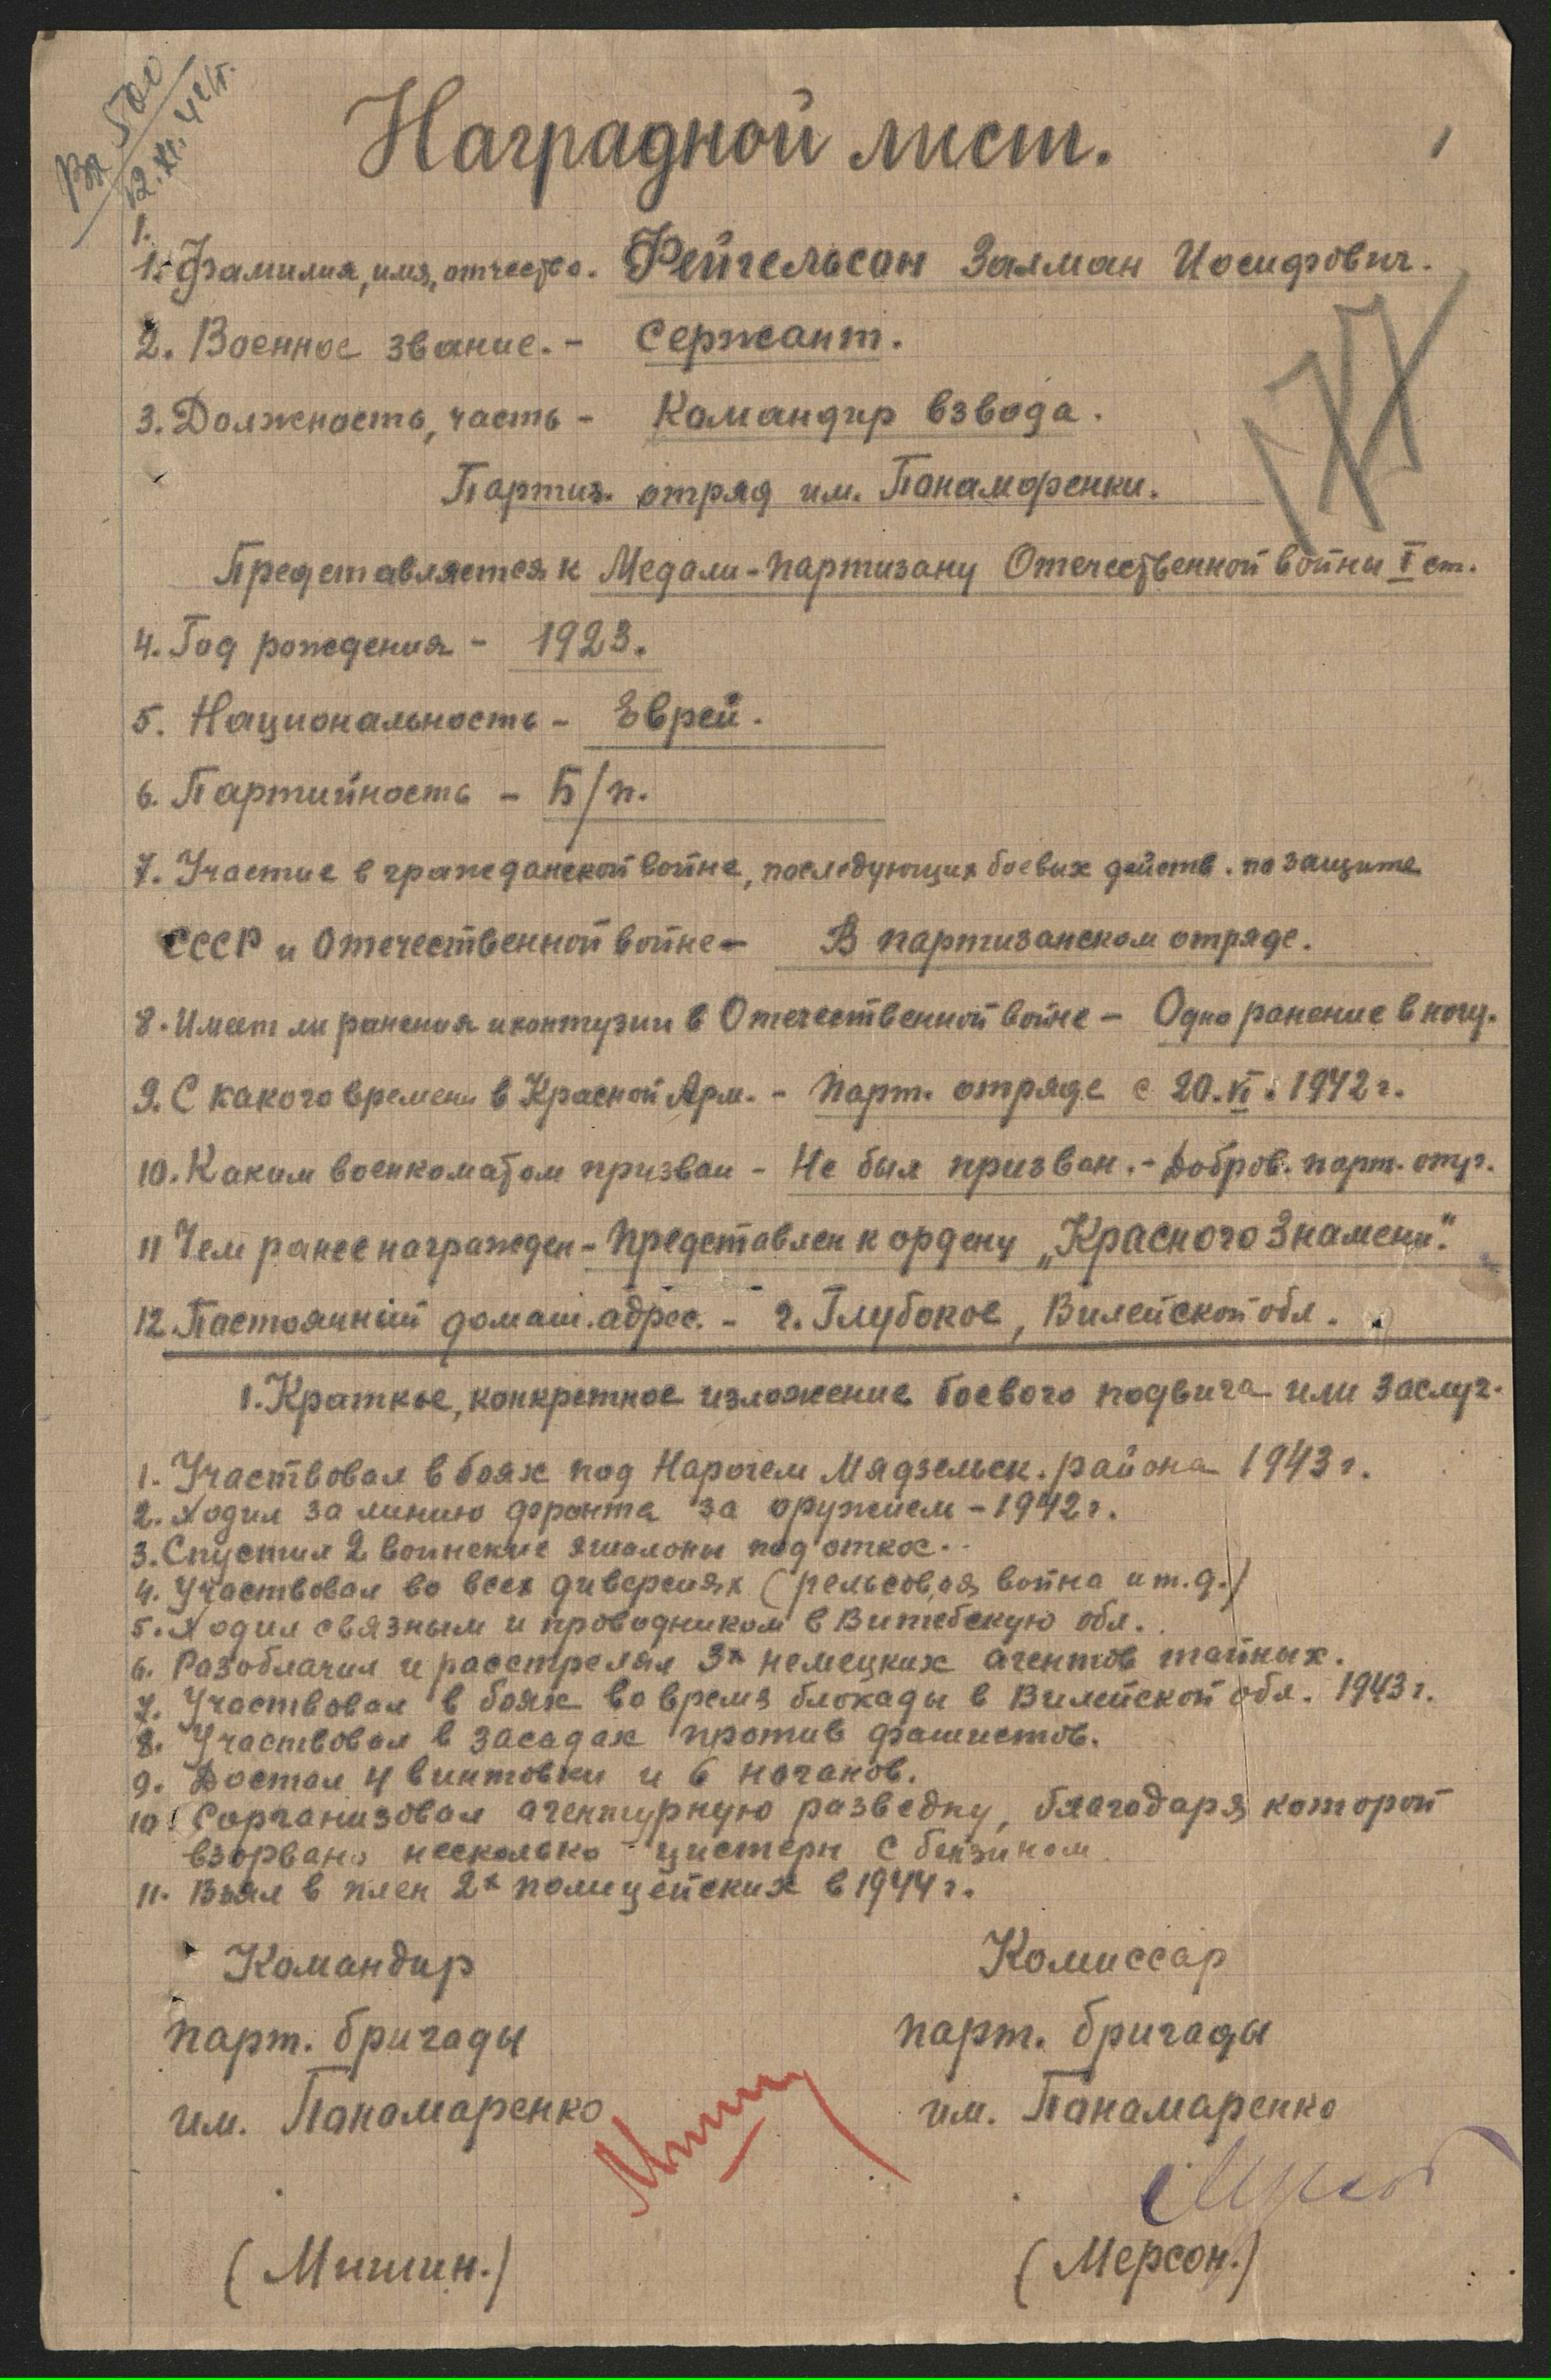 Вх 500
12.XI.44г.
Наградной лист.
1
1.
1. Фамилия, имя, отчество. Фейгельсон Залман Иосифович.
2. Военное звание. - Сержант.
3. Должность, часть - Командир взвода.
Партиз. отряд им. Панаморенки.
Представляется к Медали - партизану Отечественной войны I ст.
4. Год рождения - 1923.
5. Национальность - Еврей.
6. Партийность - Б/п.
7. Участие в гражданской войне, последующих боевых действ. по защите
СССР и Отечественной войне - В партизанском отряде.
8. Имеет ли ранения и контузии в Отечественной войне - Одно ранение в ногу.
9. С какого времени в Красной Арм. - Парт. отряде с 20.VI.1942 г.
10. Каким военкоматом призван - Не был призван. - Добров. парт. отр.
11 Чем ранее награжден - Представлен к ордену „Красного Знамени".
12. Постоянный домаш. адрес. - г. Глубокое, Вилейской обл.
1. Краткое, конкретное изложение боевого подвига или заслуг.
1. Участвовал в боях под Нарочем Мядзельск. района 1943 г.
2. Ходил за линию фронта за оружием - 1942 г.
3. Спустил 2 воинские эшалоны под откос.
4. Участвовал во всех диверсиях (рельсовая война и т.д.)
5. Ходил связным и проводником в Витебскую обл.
6. Разоблачил и расстрелял 3х немецких агентов тайных.
7. Участвовал в боях во время блокады в Вилейской обл. 1943 г.
8. Участвовал в засадах против фашистов.
9. Достал 4 винтовки и 6 наганов.
10. Сорганизовал агентурную разведку, благодаря которой
взорвано несколько цистерн с бензином
11. Взял в плен 2х полицейских в 1944 г.
Командир Комиссар
парт. бригады парт. бригады
им. Панамаренко им. Панамаренко
(Мишин.) (Мерсон.)